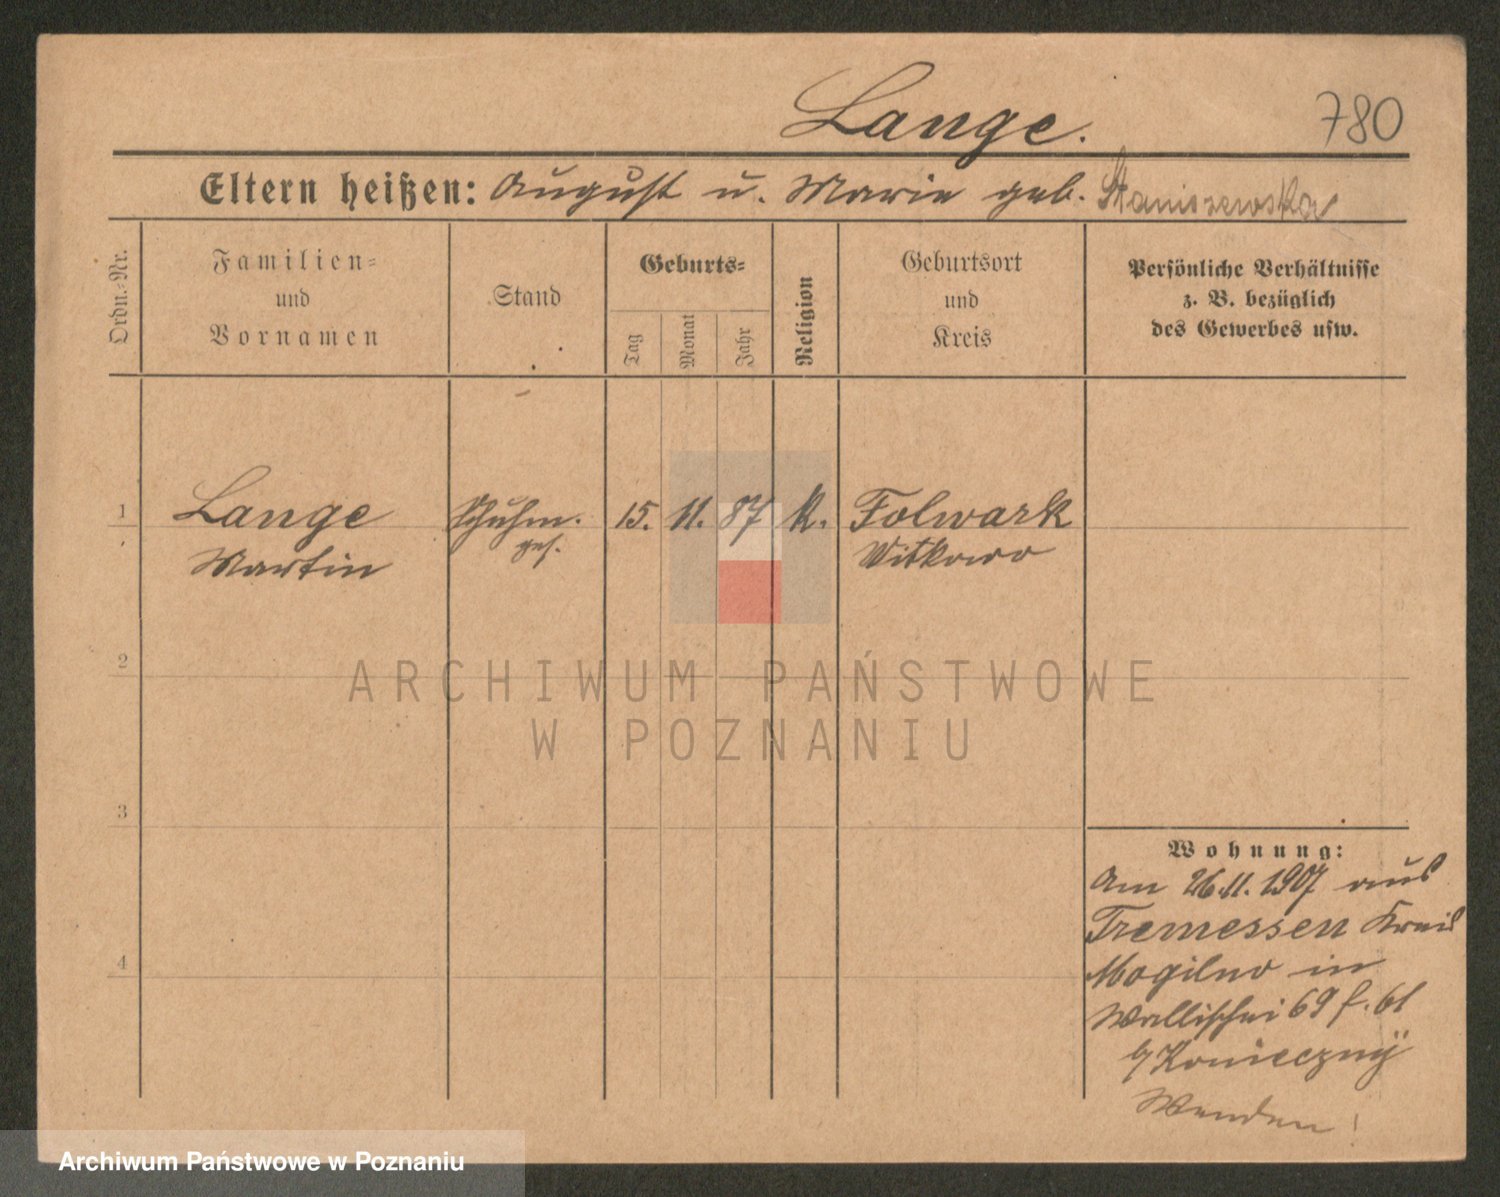 Lange.
780
Eltern heißen: August u. Marie geb. Staniszewska
Ordn.-Nr.
Familien-
und
Vornamen
Stand
Geburts-
Tag
Monat
Jahr
Religion
Geburtsort
und
Kreis
Persönliche Verhältnisse
z. B. bezüglich
des Gewerbes usw.
1 Lange Schuhm. 15. 11. 87 K. Folwark
Martin ges. Witkowo
2
ARCHIWUM PAŃSTWOWE
W POZNANIU
3
Wohnung:
Am 26.11.1907 aus
Tremessen Kreis
4
Mogilno in
Wallischei 69 f. 61
b/ Konieczny
Wenden!
Archiwum Państwowe w Poznaniu